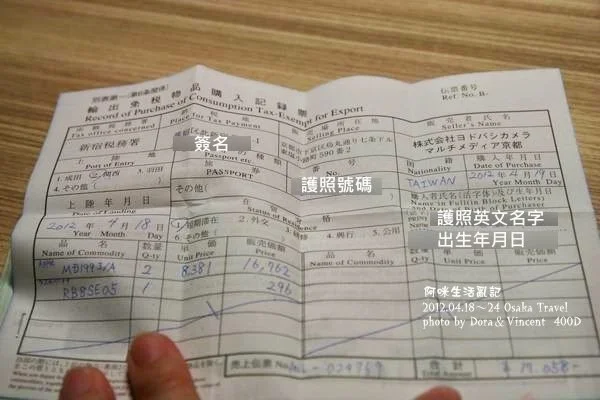 別表第一(第6条関係)
輸出免税物品購入記録票
Record of Purchase of Consumption Tax-Exempt for Export
伝票番号
Ref. No. B-
所轄税務署
Tax office concerned
新宿税務署
Place for Tax Payment
簽名
販売場所在地
Selling Place
京都市下京区烏丸通七条下ル
東塩小路町590番2
販売者氏名
Seller's Name
株式会社ヨドバシカメラ
マルチメディア京都
上陸地
Port of Entry
1.成田 2.関西 3.羽田
4.その他(
Passport etc.
旅券
PASSPORT
その他(
番号
Number
護照號碼
国籍
Nationality
TAIWAN
購入年月日
Date of Purchase
2012年4月19日
Year Month Day
上陸年月日
Date of Landing
2012年4月18日
Year Month Day
在留資格
Status of Residence
1.短期滞在 2.外交 3.研修 4.興行 5.公用
6.その他(
購入者氏名(活字体)及び生年月日
Name in Full(in Block Letters)
護照英文名字
出生年月日
品名
Name of Commodity
数量
Q-ty
単価
Unit Price
販売価額
Price
品名
Name of Commodity
数量
Q-ty
単価
Unit Price
販売価額
Price
MD199J/A 2 8,381 16,762
RB8SE05 1 296
売上伝票No.
合計
Total Amount
¥ 17,058-
阿咪生活亂記
2012.04.18~24 Osaka Travel
photo by Dora & Vincent 400D